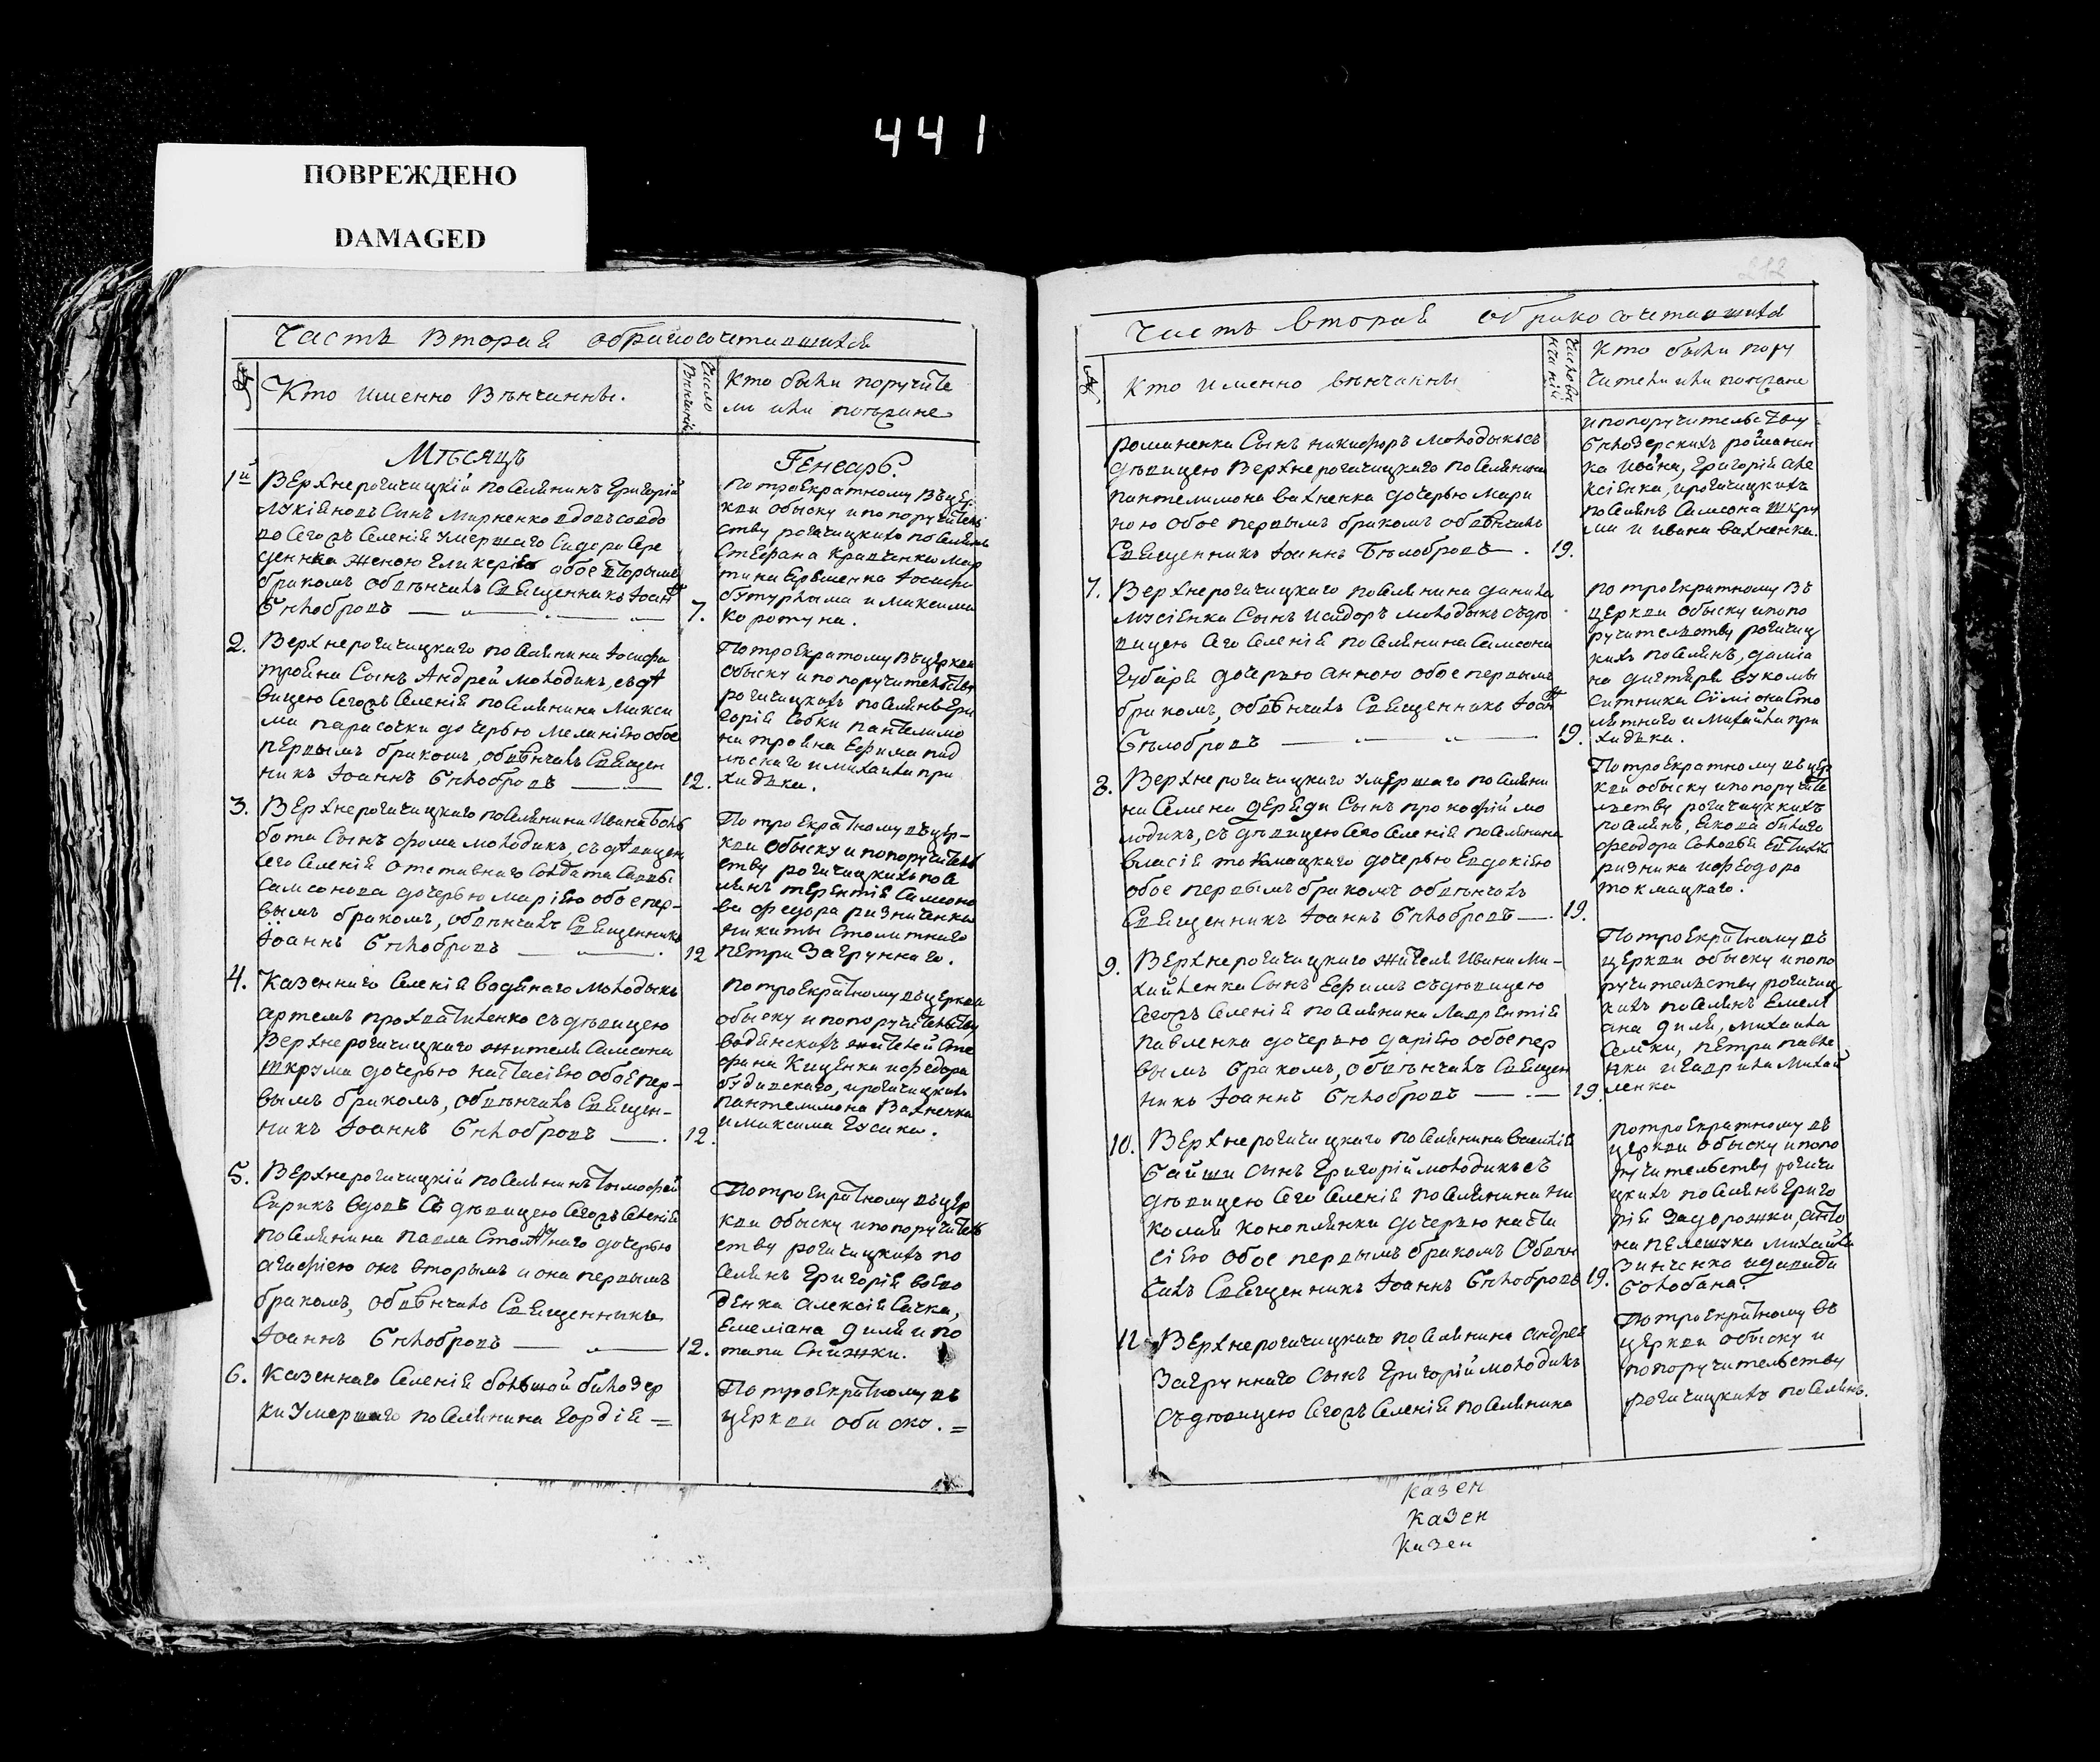 441
ПОВРЕЖДЕНО
DAMAGED
Часть Вторая обракосочетавшихся
Кто именно Вѣнчанны.
Число Вѣнчаній
Кто были поручите
ли или поѣзжане
Мѣсяцъ
Генварь.
1й
Верхнерогачицкій поселянинъ Григорій
Лукіяновъ Сынъ Мирненко вдовъ со вдо
вою сегожъ Селенія умершаго Сидора Сере
женка женою Гликеріею обое вторымъ
бракомъ обвѣнчалъ Священникъ Іоаннъ
Бѣлобровъ
7.
по троекратному въ цер
кви обыску и по поручитель
ству рогачицкихъ поселянъ
Стефана Кравченка Мар
тина Ерёменка Іосифа
бутурлыма и Максима
Коротуна.
2.
Верхнерогачицкаго поселянина Іосифа
трояна Сынъ Андрей молодикъ, съ дѣ
вицею Сегожъ Селенія поселянина Макси
ма парасочки дочерью Меланіею обое
первымъ бракомъ, обвѣнчалъ Священ
никъ Іоаннъ Бѣлобровъ
12.
По троекратному въ церкви
обыску и по поручительству
рогачицкихъ поселянъ Гри
горія Собки пантелимо
на трояна Ефима под
лѣснаго и михайла при
ходька.
3.
Верхнерогачицкаго поселянина Ивана Боль
бота Сынъ фома молодикъ, съ дѣвицею
сего Селенія отставнаго Солдата Саввы
Самсонова дочерью маріею обое пер-
вымъ бракомъ, обвѣнчалъ Священникъ
Іоаннъ Бѣлобровъ
12
По троекратному въ цер-
кви обыску и по поручитель
ству рогачицкихъ посе
лянъ терентія Самсоно
ва федора ризниченка
никиты Столитняго
петра Загруннаго.
4.
Казеннаго Селенія водянаго молодыкъ
артемъ прохватиленко съ дѣвицею
Верхнерогачицкаго жителя Самсона
шкрума дочерью настасіею обое пер-
вымъ бракомъ, обвѣнчалъ Священ-
никъ Іоаннъ Бѣлобровъ
12.
по троекратному въ церкви
обыску и по поручительству
водянскихъ жителей Сте
фана Киценка и федора
будянскаго, и рогачицкихъ
пантелимона Вахненка
и максима Гусака.
5.
Верхнерогачицкій поселянинъ Тимофей
Сирикъ вдовъ съ дѣвицею Сегожъ Селенія
поселянина павла Столѣтняго дочерью
агафіею онъ вторымъ а она первымъ
бракомъ, обвѣнчалъ Священникъ
Іоаннъ Бѣлобровъ
12.
По троекратному въ цер
кви обыску и по поручитель
ству рогачицкихъ по
селянъ Григорія воево
денка алексія Сачка,
Емеліана диля и по
тапа Снижки.
6.
Казеннаго Селенія большой бѣлозер
ки умершаго поселянина Гордія =
По троекратному въ
церкви обыску. =
212
Часть вторая обракосочетавшихся
Кто именно вѣнчанны
Число вѣнчаній
Кто были пору
чители или поѣзжане
романенка Сынъ никифоръ молодыкъ съ
дѣвицею Верхнерогачицкаго поселянина
пантелимона вахненка дочерью мари
ною обое первымъ бракомъ обвѣнчалъ
Священникъ Іоаннъ Бѣлобровъ.
19.
и по поручительству
бѣлозерскихъ романен
ка ивана, Григорія але
ксіенка, и рогачицкихъ
поселянъ Самсона шкру
ма и ивана вахненка.
7.
Верхнерогачицкаго поселянина данила
мусіенка Сынъ исидоръ молодыкъ съ дѣ
вицею сего Селенія поселянина Самсона
Губаря дочерью анною обое первымъ
бракомъ, обвѣнчалъ Священникъ Іоаннъ
Бѣлобровъ
19.
по троекратному въ
церкви обыску и по по
ручительству рогачиц
кихъ поселянъ, даміа
на дигтяря вукомы
Ситника Симіона Сто
лѣтняго и михайла при
ходька.
8.
Верхнерогачицкаго умершаго поселяни
на Семена дереди Сынъ прокофій мо
лодикъ, съ дѣвицею Сего Селенія поселянина
власія токмацкаго дочерью Евдокіею
обое первымъ бракомъ обвѣнчалъ
Священникъ Іоаннъ Бѣлобровъ.
19.
По троекратному въ цер
кви обыску и по поручите
льству рогачицкихъ
поселянъ, якова билаго
феодора Соловья
ризника и феодора
токмацкаго.
9.
Верхнерогачицкаго жителя Ивана Ми-
хайленка Сынъ Ефимъ съ дѣвицею
Сегожъ Селенія поселянина Лаврентія
павленка дочерью даріею обое пер
вымъ бракомъ, обвѣнчалъ Священ
никъ Іоаннъ Бѣлобровъ
19.
По троекратному въ
церкви обыску и по по
ручительству рогачиц
кихъ поселянъ Емелі
ана диля, михаила
Семки, петра павле
нка и гаврила михай
ленка
10.
Верхнерогачицкаго поселянина василія
байши сынъ Григорій молодикъ съ
дѣвицею Сего Селенія поселянина ни
колая коноплянки дочерью наста
сіею обое первымъ бракомъ Обвѣн
чалъ Священникъ Іоаннъ Бѣлобровъ
19.
по троекратному въ
церкви обыску и по по
ручительству рогачи
цкихъ поселянъ Григо
рія Задорожки, анто
на пелешука михайла
Зинченка и давида
болобана.
11.
Верхнерогачицкаго поселянина андрея
Загруннаго сынъ Григорій молодикъ
съ дѣвицею Сегожъ Селенія поселянина
По троекратному въ
церкви обыску и
по поручительству
рогачицкихъ поселянъ.
казен
казен
казен